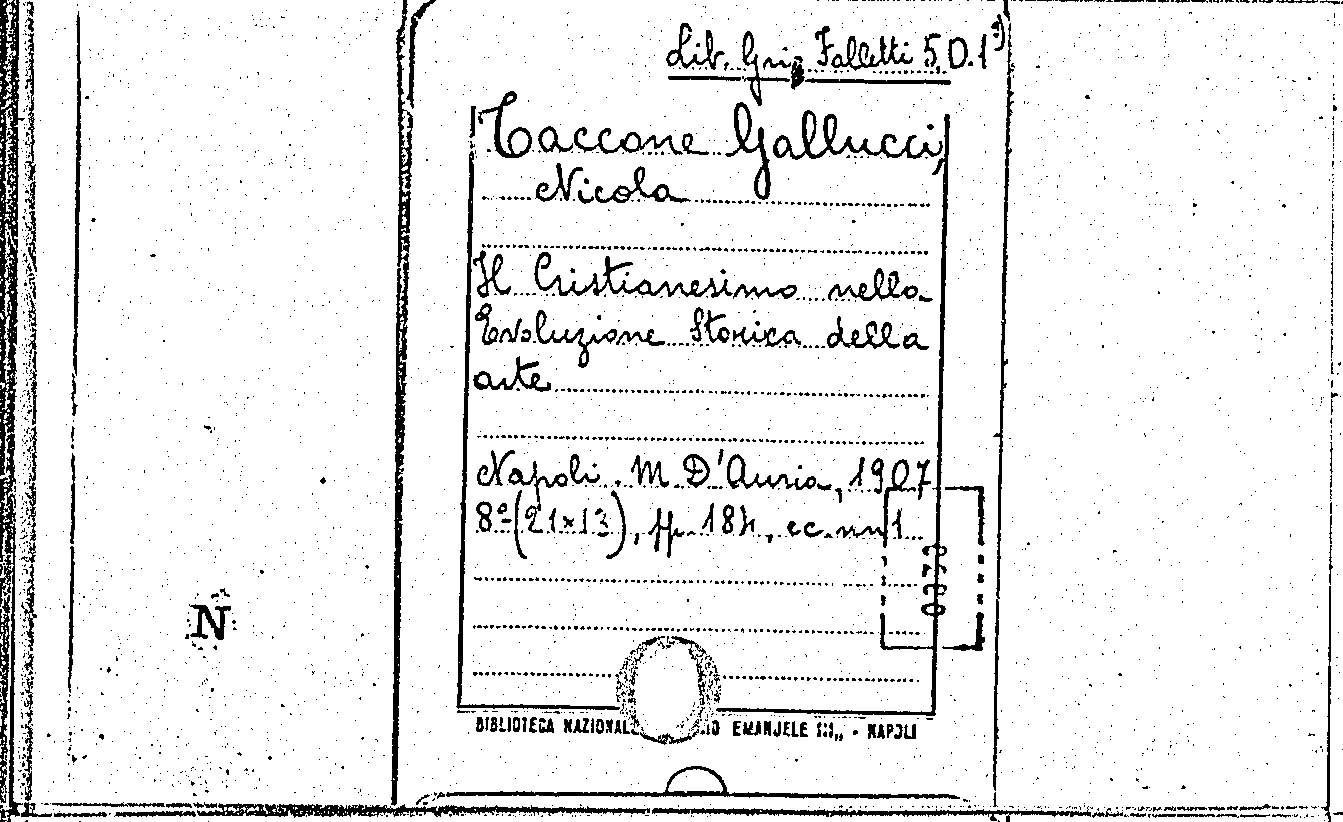 Lib. Grig Falletti 5.D.1³)
Taccone Gallucci,
Nicola
Il Cristianesimo nella
Evoluzione Storica della
arte
Napoli. M D'Auria, 1907
8º (21×13), pp. 184, cc. nn 1
N
BIBLIOTECA NAZIONALE EMANUELE III„ - NAPOLI